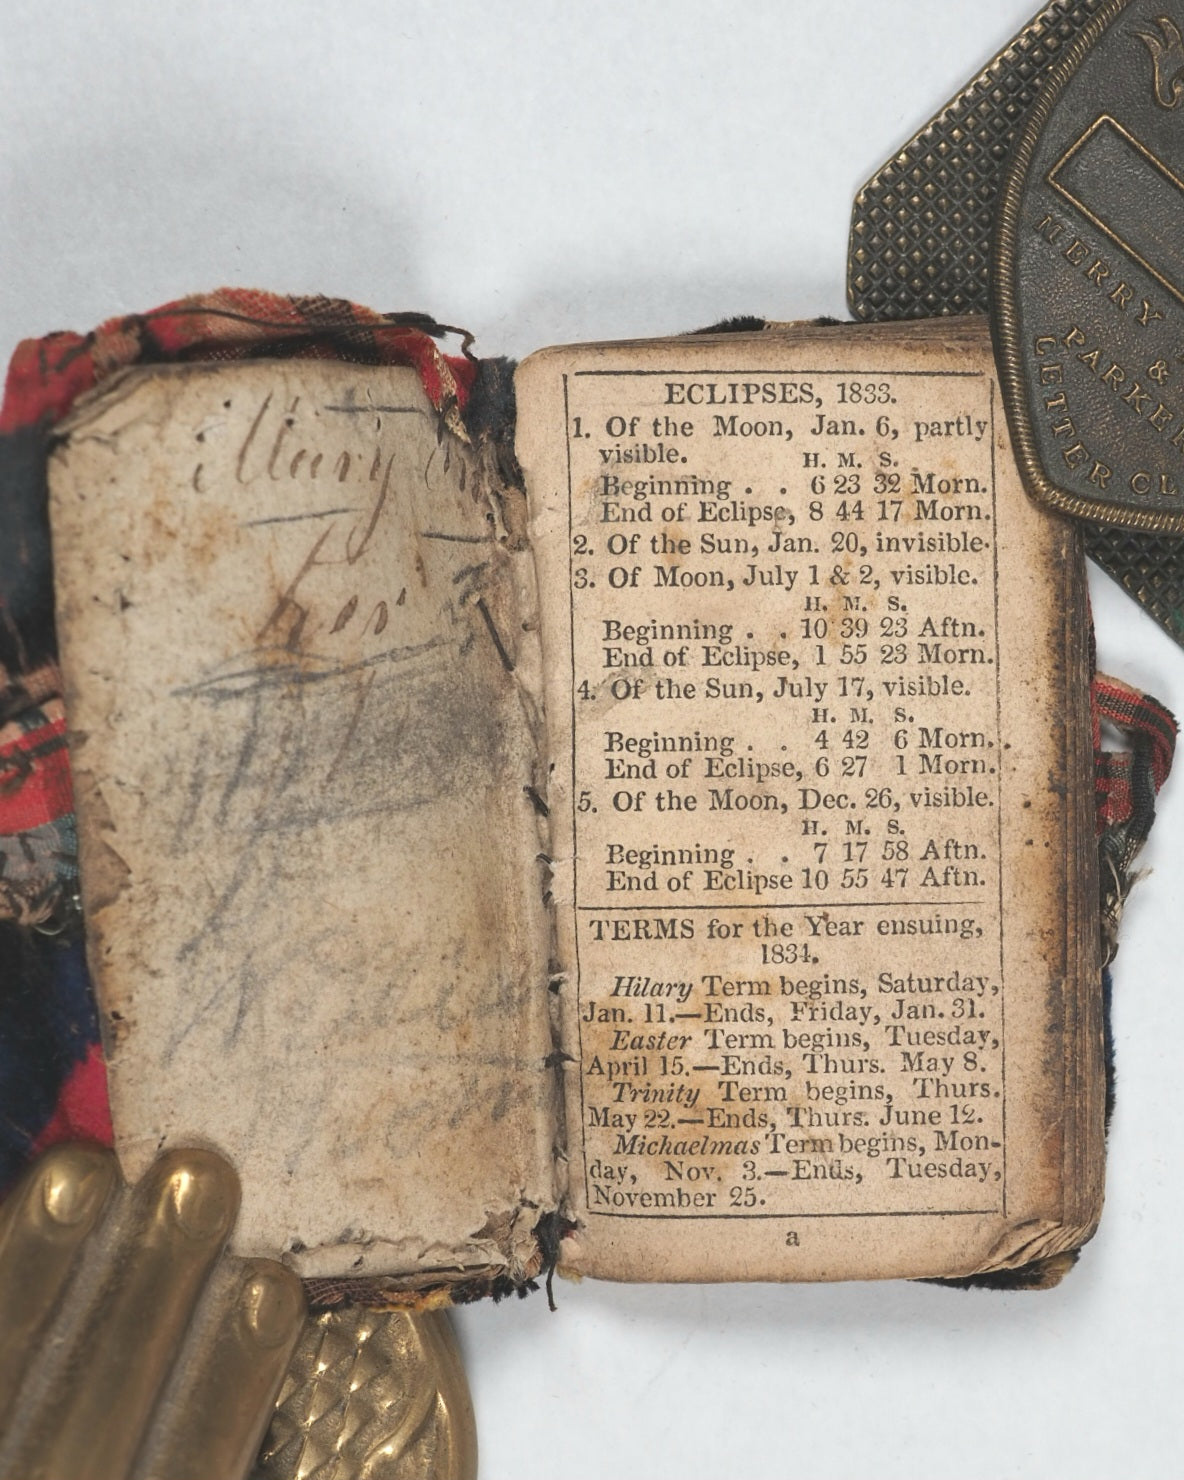 Mary
her
ECLIPSES, 1833.
1. Of the Moon, Jan. 6, partly
visible. H. M. S.
Beginning . . 6 23 32 Morn.
End of Eclipse, 8 44 17 Morn.
2. Of the Sun, Jan. 20, invisible.
3. Of Moon, July 1 & 2, visible.
H. M. S.
Beginning . . 10 39 23 Aftn.
End of Eclipse, 1 55 23 Morn.
4. Of the Sun, July 17, visible.
H. M. S.
Beginning . . 4 42 6 Morn.
End of Eclipse, 6 27 1 Morn.
5. Of the Moon, Dec. 26, visible.
H. M. S.
Beginning . . 7 17 58 Aftn.
End of Eclipse 10 55 47 Aftn.
TERMS for the Year ensuing,
1834.
Hilary Term begins, Saturday,
Jan. 11.—Ends, Friday, Jan. 31.
Easter Term begins, Tuesday,
April 15.—Ends, Thurs. May 8.
Trinity Term begins, Thurs.
May 22.—Ends, Thurs. June 12.
Michaelmas Term begins, Mon-
day, Nov. 3.—Ends, Tuesday,
November 25.
a
MERRY
&
PARKER
LETTER CL